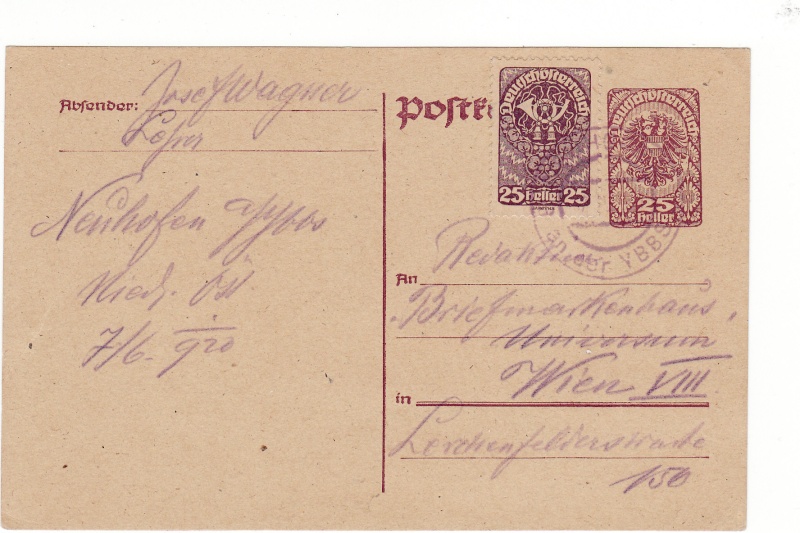 Absender: Josef Wagner
Neuhofen a/Ybbs
Nied. Öst
7/6. 920
Postk
Deutschösterreich
25 Heller 25
Deutschösterreich
25
Heller
an der YBBS
Redaktion
An "Briefmarkenhaus"
Universum
in Wien VIII
Lerchenfelderstraße
150